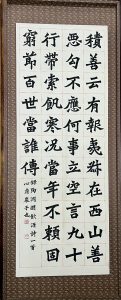 積善云有報夷叔在西山善
惡苟不應何事立空言九十
行帶索飢寒況當年不賴固
窮節百世當誰傳
錄陶淵明飲酒詩一首